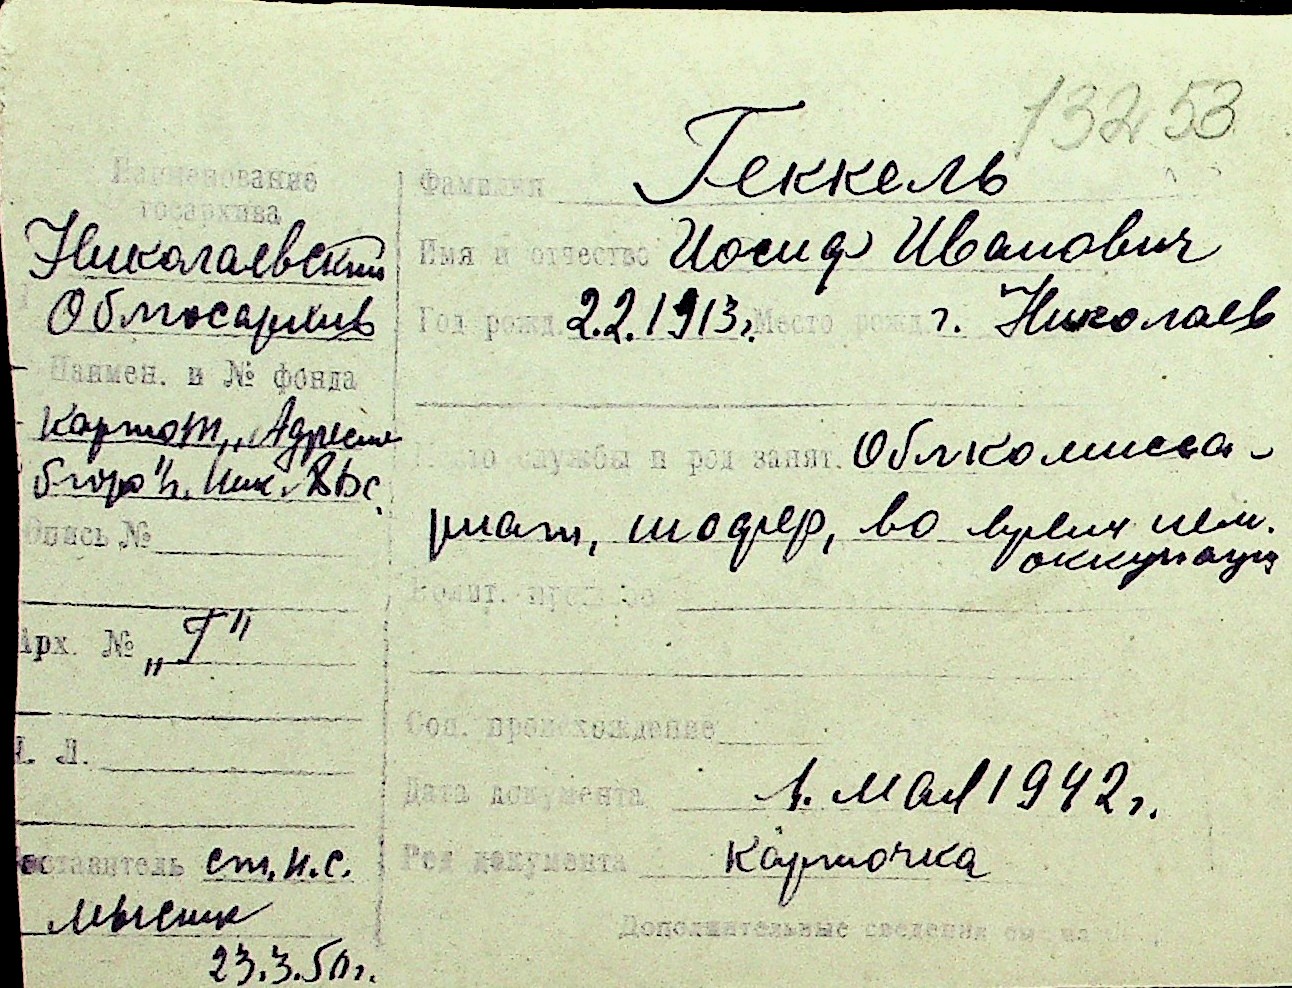 13253
Наименование
госархива
Николаевский
Облгосархив
Наимен. и № фонда
Картот. „Адресное
бюро" г. Ник.
Опись №
Арх. № „Г"
Л.
составитель ст. н. с.
23.3.50 г.
Фамилия Геккель
Имя и отчество Иосиф Иванович
Год рожд. 2.2.1913 г. Место рожд. г. Николаев
Место службы и род занят. Облкомисса-
риат, шофер, во время нем.
оккупации
Соц. происхождение
Дата документа 1. мая 1942 г.
Род документа карточка
Дополнительные сведения см. на